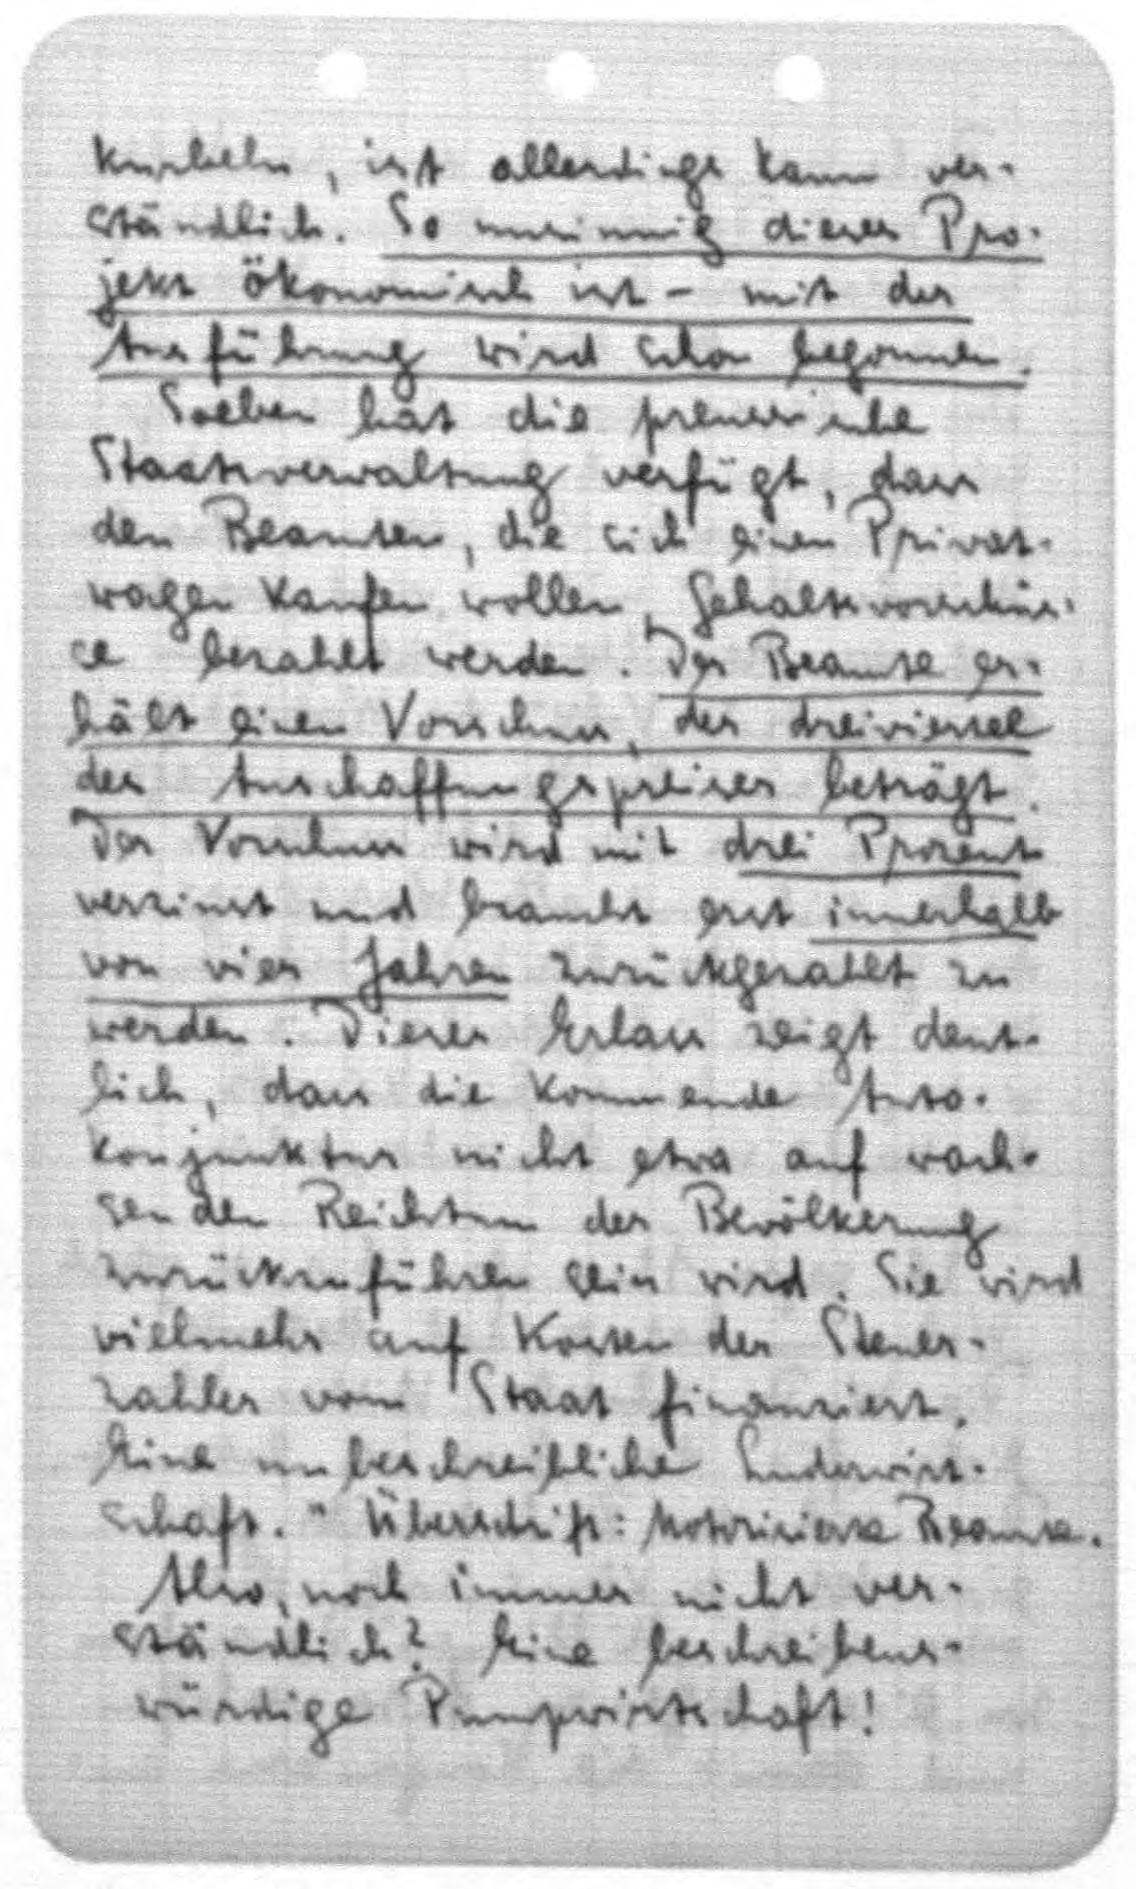 kurbeln, ist allerdings kaum ver-
ständlich. So unsinnig dieses Pro-
jekt ökonomisch ist – mit der
Ausführung wird schon begonnen.
Soeben hat die preussische
Staatsverwaltung verfügt, dass
den Beamten, die sich einen Privat-
wagen kaufen wollen, Gehaltsvorschüs-
se bezahlt werden. Der Beamte er-
hält einen Vorschuss, der dreiviertel
des Anschaffungspreises beträgt.
Der Vorschuss wird mit drei Prozent
verzinst und braucht erst innerhalb
von vier Jahren zurückgezahlt zu
werden. Dieser Erlass zeigt deut-
lich, dass die kommende Auto-
konjunktur nicht etwa auf wach-
senden Reichtum der Bevölkerung
zurückzuführen sein wird. Sie wird
vielmehr auf Kosten der Steuer-
zahler vom Staat finanziert.
Eine unbeschreibliche Luderwirt-
schaft." Überschrift: Motorisierte Beamte.
Also, noch immer nicht ver-
ständlich? Eine beschreibens-
würdige Pumpwirtschaft!